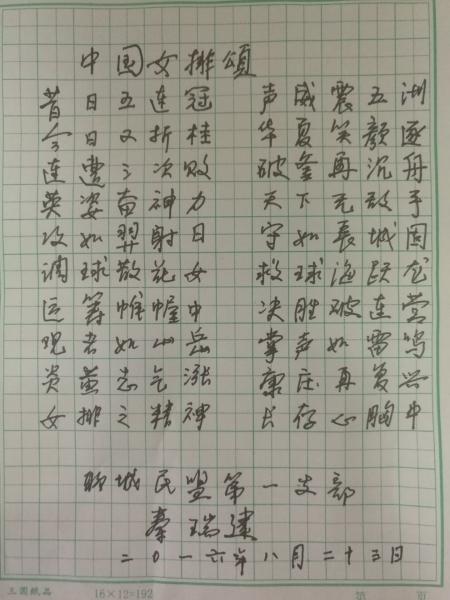 中国女排頌
昔日五连冠 声威震五湖
今日又折桂 华夏笑颜逐
连遭三次败 破釜再沉舟
英姿奋神力 天下无敌手
攻如羿射日 守如长城固
调球散花女 救球渔跃龙
运筹帷幄中 决胜破连营
观者如山岳 掌声如雷鸣
炎黄志气涨 康庄再复兴
女排之精神 长存心胸中
聊城民盟第一支部
秦瑞建
二0一六年八月二十三日
三圆纸品 16×12=192 第 页